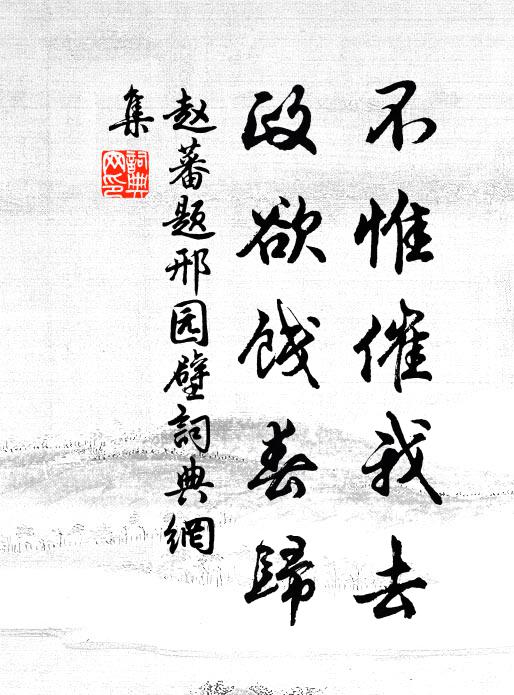 不惟催我去
政欲饯春歸
赵蕃题邢园壁詞典網
集
詞典网印